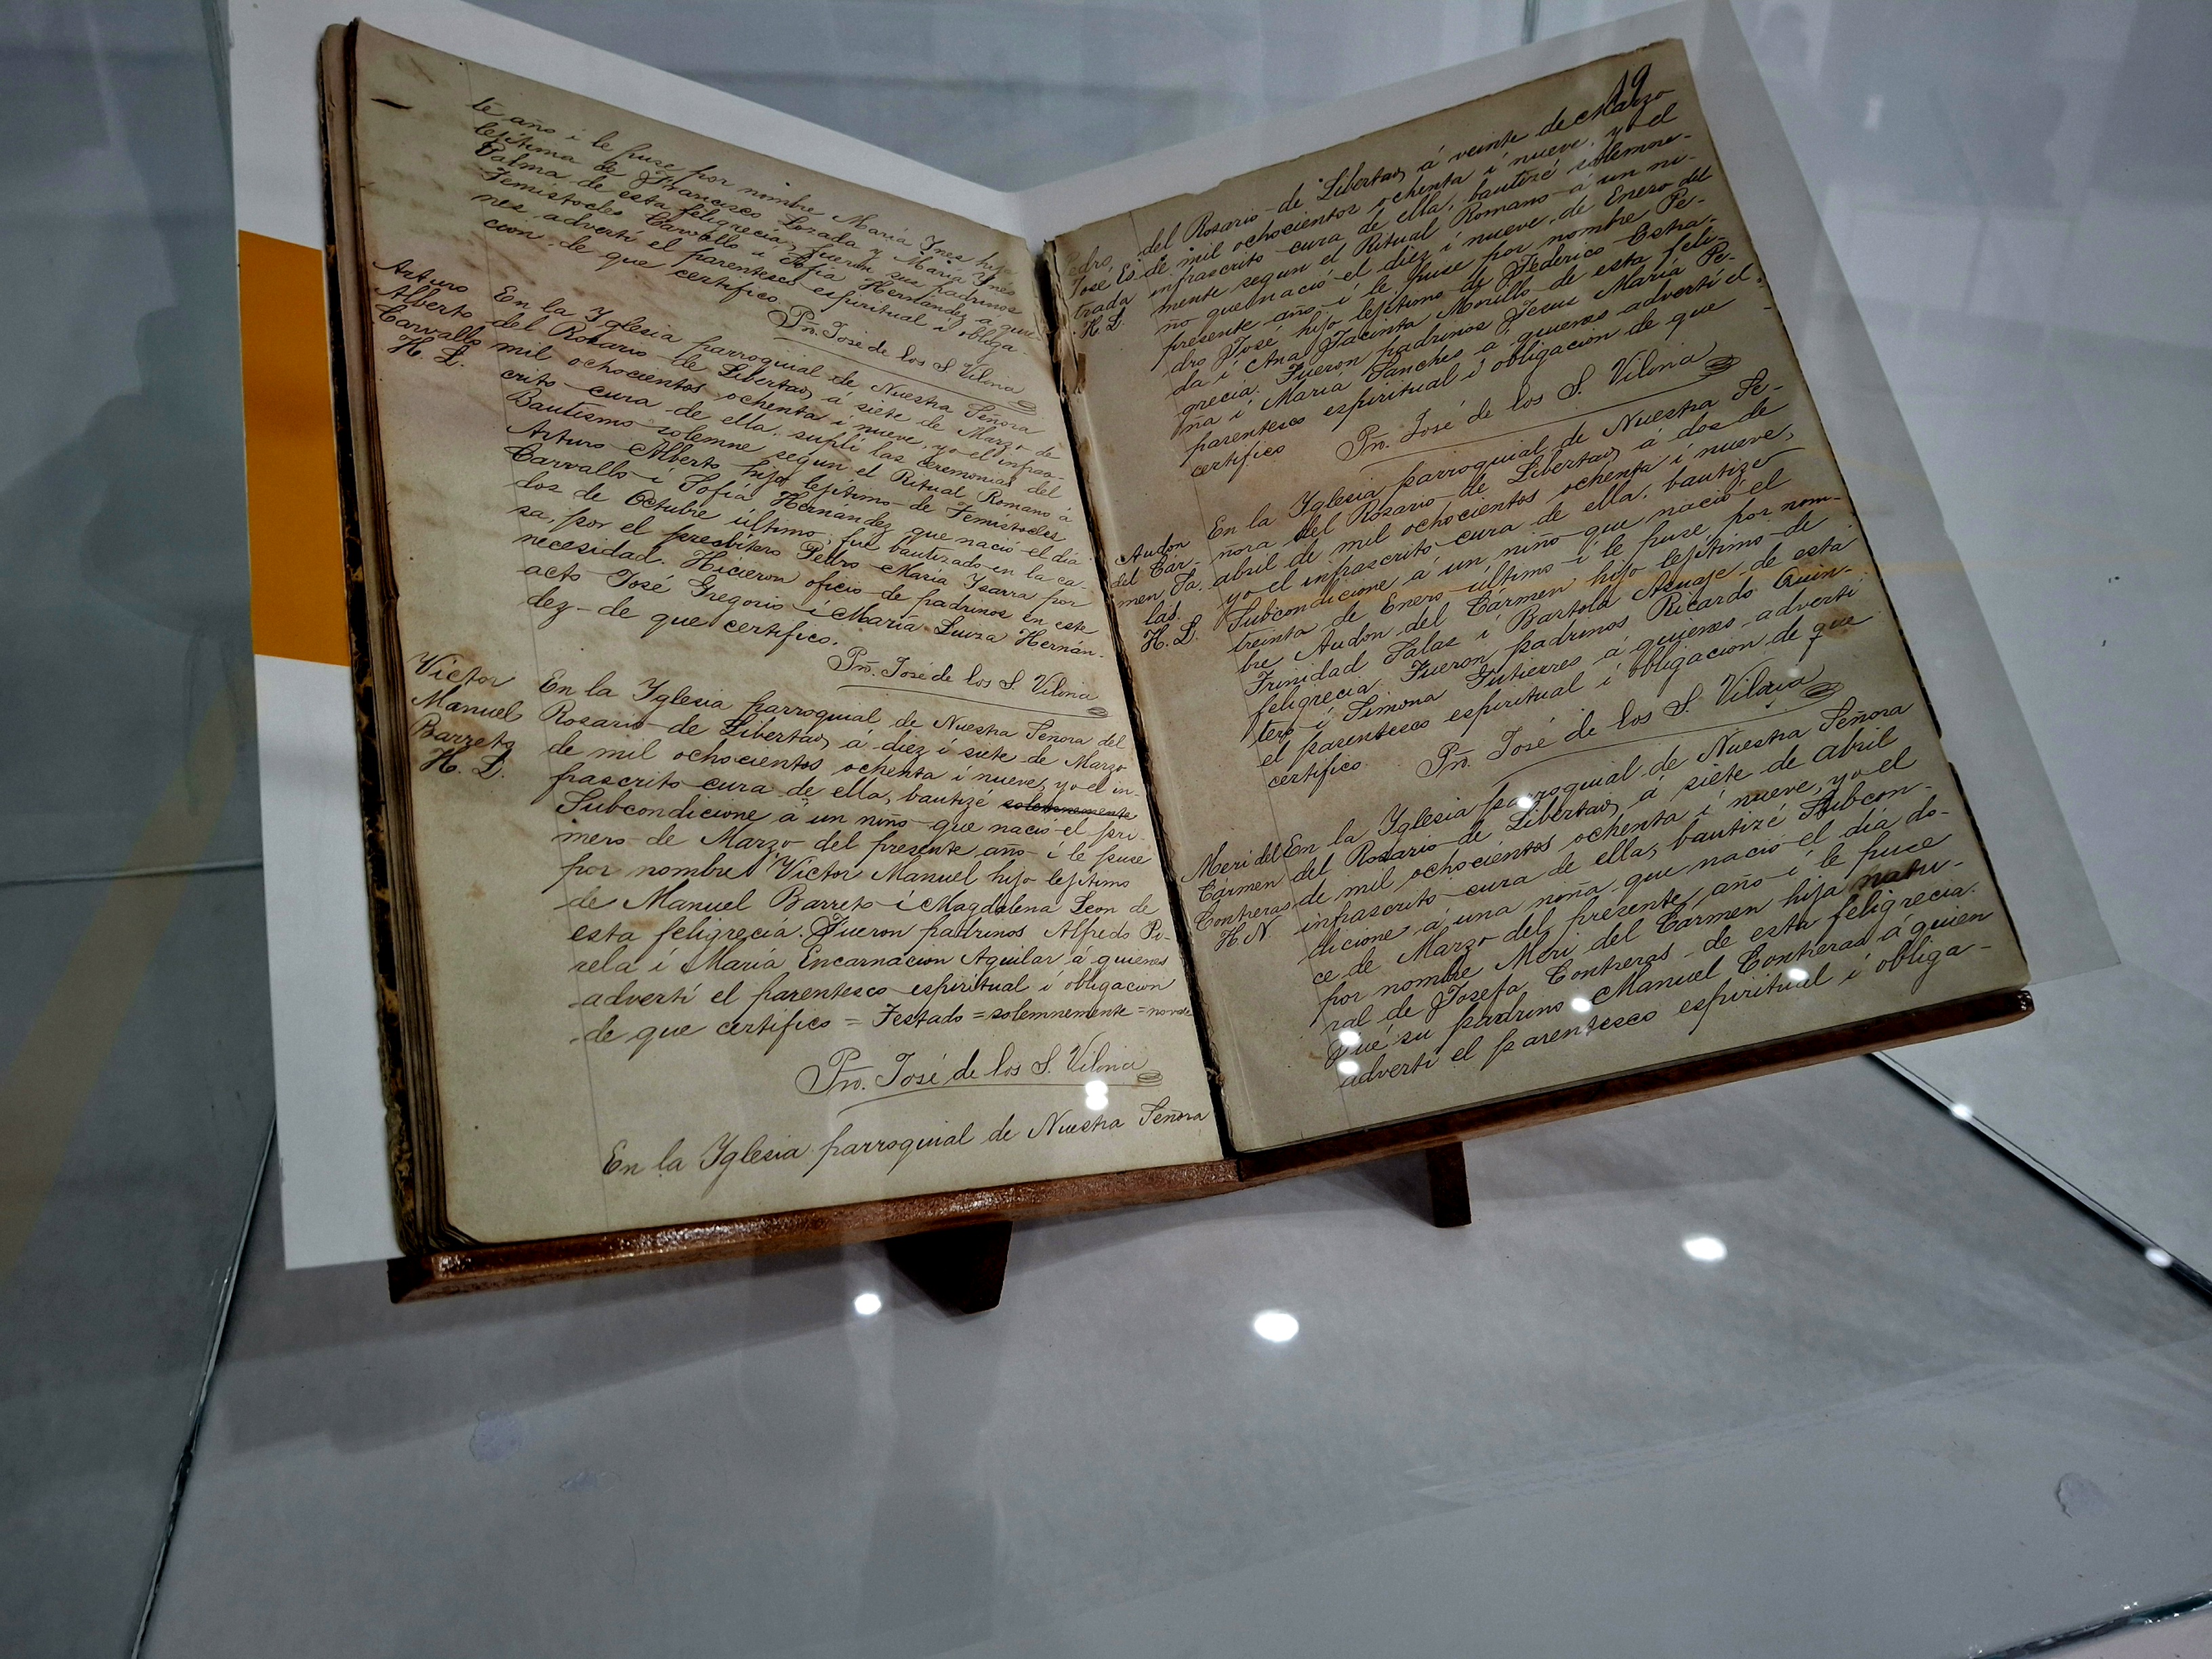 te año i le puse por nombre María Ynes hija
lejítima de Francisco Lozada y María Ynés
Palma de esta feligrecía, fueron sus padrinos
Temístocles Carvallo i Sofía Hernández a quie-
nes advertí el parentesco espiritual i obliga-
cion de que certifico.
Pro. José de los S. Viloria
Arturo
Alberto
Carvallo
H. L.
En la Yglesia parroquial de Nuestra Señora
del Rosario de Libertad, á siete de Marzo de
mil ochocientos ochenta i nueve, yo el infras-
crito cura de ella, suplí las ceremonias del
Bautismo solemne segun el Ritual Romano á
Arturo Alberto hijo lejítimo de Temístocles
Carvallo i Sofía Hernández que nació el dia
dos de Octubre último; fue bautizado en la ca-
sa, por el presbítero Pedro María Ysarra por
necesidad. Hicieron oficio de padrinos en este
acto José Gregorio i María Luiza Hernán-
dez- de que certifico.
Pro. José de los S. Viloria
Víctor
Manuel
Barreto
H. L.
En la Yglesia parroquial de Nuestra Señora del
Rosario de Libertad, á diez i siete de Marzo
de mil ochocientos ochenta i nueve, yo el in-
frascrito cura de ella, bautizé solemnemente
Subcondicione á un niño que nació el pri-
mero de Marzo del presente año i le puse
por nombre Víctor Manuel hijo lejítimo
de Manuel Barreto i Magdalena Leon de
esta feligrecía. Fueron padrinos Alfredo Pi-
rela i María Encarnacion Aguilar á quienes
advertí el parentesco espiritual i obligacion
de que certifico = Testado = solemnemente = no vale
Pro. José de los S. Viloria
En la Yglesia parroquial de Nuestra Señora
19
Pedro,
José Es-
trada
H. L.
del Rosario de Libertad, á veinte de Marzo
de mil ochocientos ochenta i nueve, yo el
infrascrito cura de ella, bautizé solemne-
mente segun el Ritual Romano á un ni-
ño que nació el diez i nueve de Enero del
presente año i le puse por nombre Pe-
dro José hijo lejítimo de Federico Estra-
da i Ana Jacinta Morillo de esta feli-
grecía. Fueron padrinos Jesus María Pe-
ña i María Sanches á quienes advertí el
parentesco espiritual i obligacion de que
certifico
Pro. José de los S. Viloria
Audon
del Cár-
men Sa-
las.
H. L.
En la Yglesia parroquial de Nuestra Se-
ñora del Rosario de Libertad, á dos de
abril de mil ochocientos ochenta i nueve,
yo el infrascrito cura de ella, bautizé
Subcondicione á un niño que nació el
treinta de Enero último i le puse por nom-
bre Audon del Cármen hijo lejítimo de
Trinidad Salas i Bartola Azuaje de esta
feligrecía. Fueron padrinos Ricardo Quin-
tero i Simona Gutierres á quienes advertí
el parentesco espiritual i obligacion de que
certifico.
Pro. José de los S. Viloria
Meri del
Cármen
Contreras
H. N.
En la Yglesia parroquial de Nuestra Señora
del Rosario de Libertad, á siete de abril
de mil ochocientos ochenta i nueve, yo el
infrascrito cura de ella, bautizé Subcon-
dicione á una niña que nació el día do-
ce de Marzo del presente año i le puce
por nombre Meri del Carmen hija natu-
ral de Josefa Contreras de esta feligrecia.
Fué su padrino Manuel Contreras á quien
advertí el parentesco espiritual i obliga-